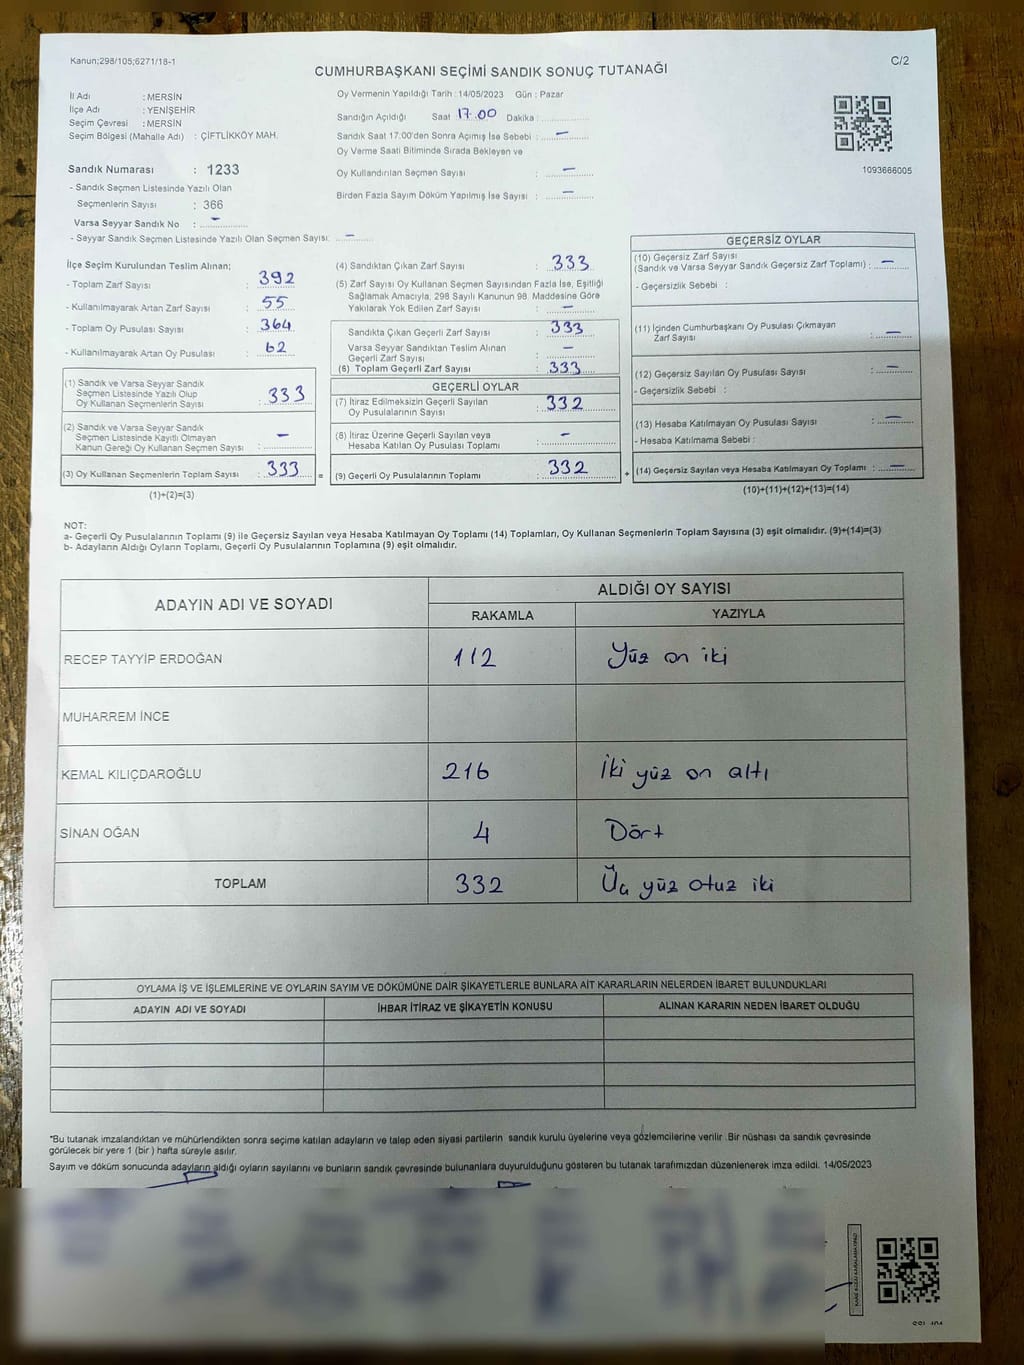 Kanun;298/105;6271/18-1
C/2
CUMHURBAŞKANI SEÇİMİ SANDIK SONUÇ TUTANAĞI
İl Adı : MERSİN
İlçe Adı : YENİŞEHİR
Seçim Çevresi : MERSİN
Seçim Bölgesi (Mahalle Adı) : ÇİFTLİKKÖY MAH.
Sandık Numarası : 1233
- Sandık Seçmen Listesinde Yazılı Olan
Seçmenlerin Sayısı : 366
Varsa Seyyar Sandık No : -
- Seyyar Sandık Seçmen Listesinde Yazılı Olan Seçmen Sayısı: -
Oy Vermenin Yapıldığı Tarih : 14/05/2023 Gün : Pazar
Sandığın Açıldığı Saat 17.00 Dakika :
Sandık Saat 17:00'den Sonra Açımış İse Sebebi : -
Oy Verme Saati Bitiminde Sırada Bekleyen ve
Oy Kullandırılan Seçmen Sayısı : -
Birden Fazla Sayım Döküm Yapılmış İse Sayısı : -
1093666005
İlçe Seçim Kurulundan Teslim Alınan;
- Toplam Zarf Sayısı : 392
- Kullanılmayarak Artan Zarf Sayısı : 55
- Toplam Oy Pusulası Sayısı : 364
- Kullanılmayarak Artan Oy Pusulası : 62
(1) Sandık ve Varsa Seyyar Sandık
Seçmen Listesinde Yazılı Olup
Oy Kullanan Seçmenlerin Sayısı : 333
(2) Sandık ve Varsa Seyyar Sandık
Seçmen Listesinde Kayıtlı Olmayan
Kanun Gereği Oy Kullanan Seçmen Sayısı : -
(3) Oy Kullanan Seçmenlerin Toplam Sayısı : 333 =
(1)+(2)=(3)
(4) Sandıktan Çıkan Zarf Sayısı : 333
(5) Zarf Sayısı Oy Kullanan Seçmen Sayısından Fazla İse, Eşitliği
Sağlamak Amacıyla, 298 Sayılı Kanunun 98. Maddesine Göre
Yakılarak Yok Edilen Zarf Sayısı : -
Sandıkta Çıkan Geçerli Zarf Sayısı : 333
Varsa Seyyar Sandıktan Teslim Alınan
Geçerli Zarf Sayısı : -
(6) Toplam Geçerli Zarf Sayısı : 333
GEÇERLİ OYLAR
(7) İtiraz Edilmeksizin Geçerli Sayılan
Oy Pusulalarının Sayısı : 332
(8) İtiraz Üzerine Geçerli Sayılan veya
Hesaba Katılan Oy Pusulası Toplamı : -
(9) Geçerli Oy Pusulalarının Toplamı : 332 +
GEÇERSİZ OYLAR
(10) Geçersiz Zarf Sayısı
(Sandık ve Varsa Seyyar Sandık Geçersiz Zarf Toplamı) : -
- Geçersizlik Sebebi :
(11) İçinden Cumhurbaşkanı Oy Pusulası Çıkmayan
Zarf Sayısı : -
(12) Geçersiz Sayılan Oy Pusulası Sayısı : -
- Geçersizlik Sebebi :
(13) Hesaba Katılmayan Oy Pusulası Sayısı : -
- Hesaba Katılmama Sebebi :
(14) Geçersiz Sayılan veya Hesaba Katılmayan Oy Toplamı : -
(10)+(11)+(12)+(13)=(14)
NOT:
a- Geçerli Oy Pusulalarının Toplamı (9) ile Geçersiz Sayılan veya Hesaba Katılmayan Oy Toplamı (14) Toplamları, Oy Kullanan Seçmenlerin Toplam Sayısına (3) eşit olmalıdır. (9)+(14)=(3)
b- Adayların Aldığı Oyların Toplamı, Geçerli Oy Pusulalarının Toplamına (9) eşit olmalıdır.
ADAYIN ADI VE SOYADI
ALDIĞI OY SAYISI
RAKAMLA YAZIYLA
RECEP TAYYİP ERDOĞAN 112 Yüz on iki
MUHARREM İNCE
KEMAL KILIÇDAROĞLU 216 İki yüz on altı
SİNAN OĞAN 4 Dört
TOPLAM 332 Üç yüz otuz iki
OYLAMA İŞ VE İŞLEMLERİNE VE OYLARIN SAYIM VE DÖKÜMÜNE DAİR ŞİKAYETLERLE BUNLARA AİT KARARLARIN NELERDEN İBARET BULUNDUKLARI
ADAYIN ADI VE SOYADI İHBAR İTİRAZ VE ŞİKAYETİN KONUSU ALINAN KARARIN NEDEN İBARET OLDUĞU
*Bu tutanak imzalandıktan ve mühürlendikten sonra seçime katılan adayların ve talep eden siyasi partilerin sandık kurulu üyelerine veya gözlemcilerine verilir .Bir nüshası da sandık çevresinde
görülecek bir yere 1 (bir ) hafta süreyle asılır.
Sayım ve döküm sonucunda adayların aldığı oyların sayılarını ve bunların sandık çevresinde bulunanlara duyurulduğunu gösteren bu tutanak tarafımızdan düzenlenerek imza edildi. 14/05/2023